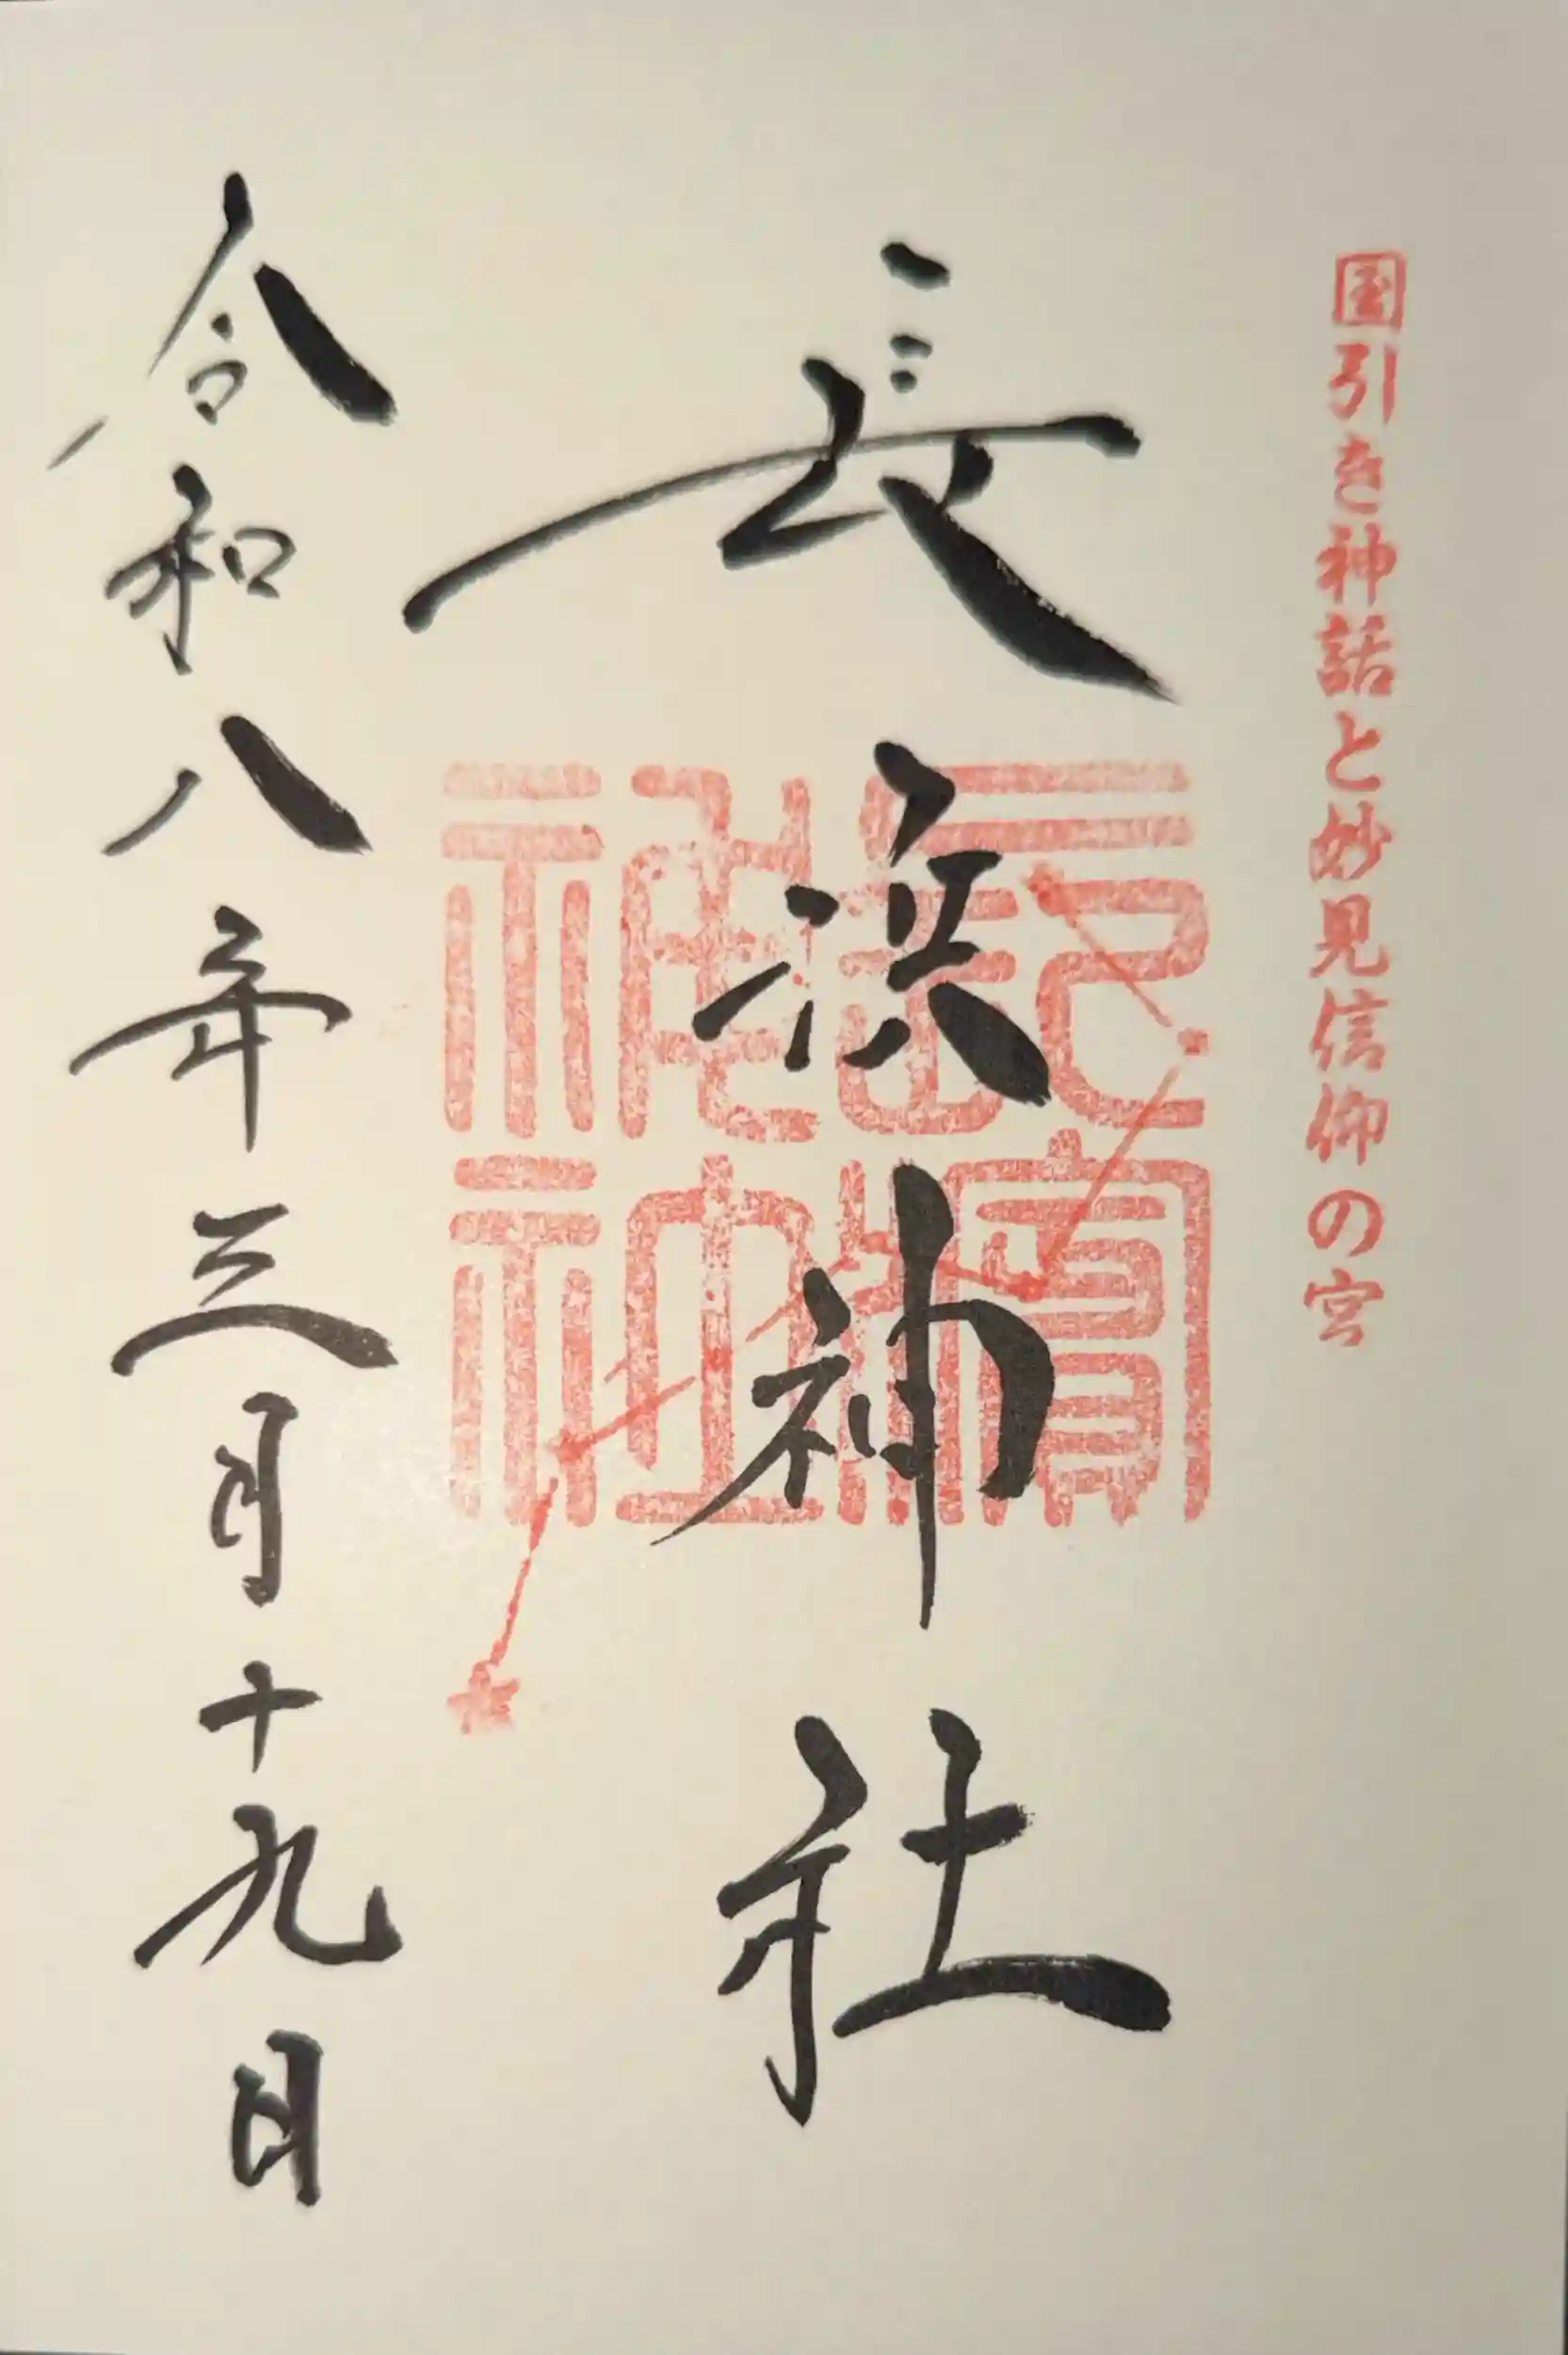 国引き神話と妙見信仰の宮
長浜神社
令和八年三月十九日